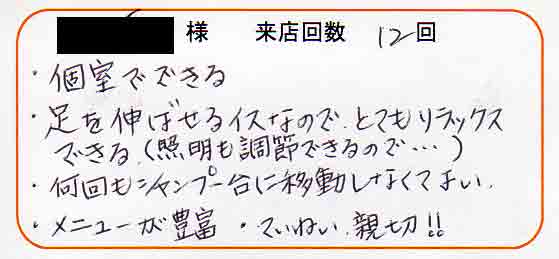 様 来店回数 12回
・個室でできる
・足を伸ばせるイスなので、とてもリラックス
できる。(照明も調節できるので…)
・何回もシャンプー台に移動しなくてよい。
・メニューが豊富 ・ていねい、親切!!